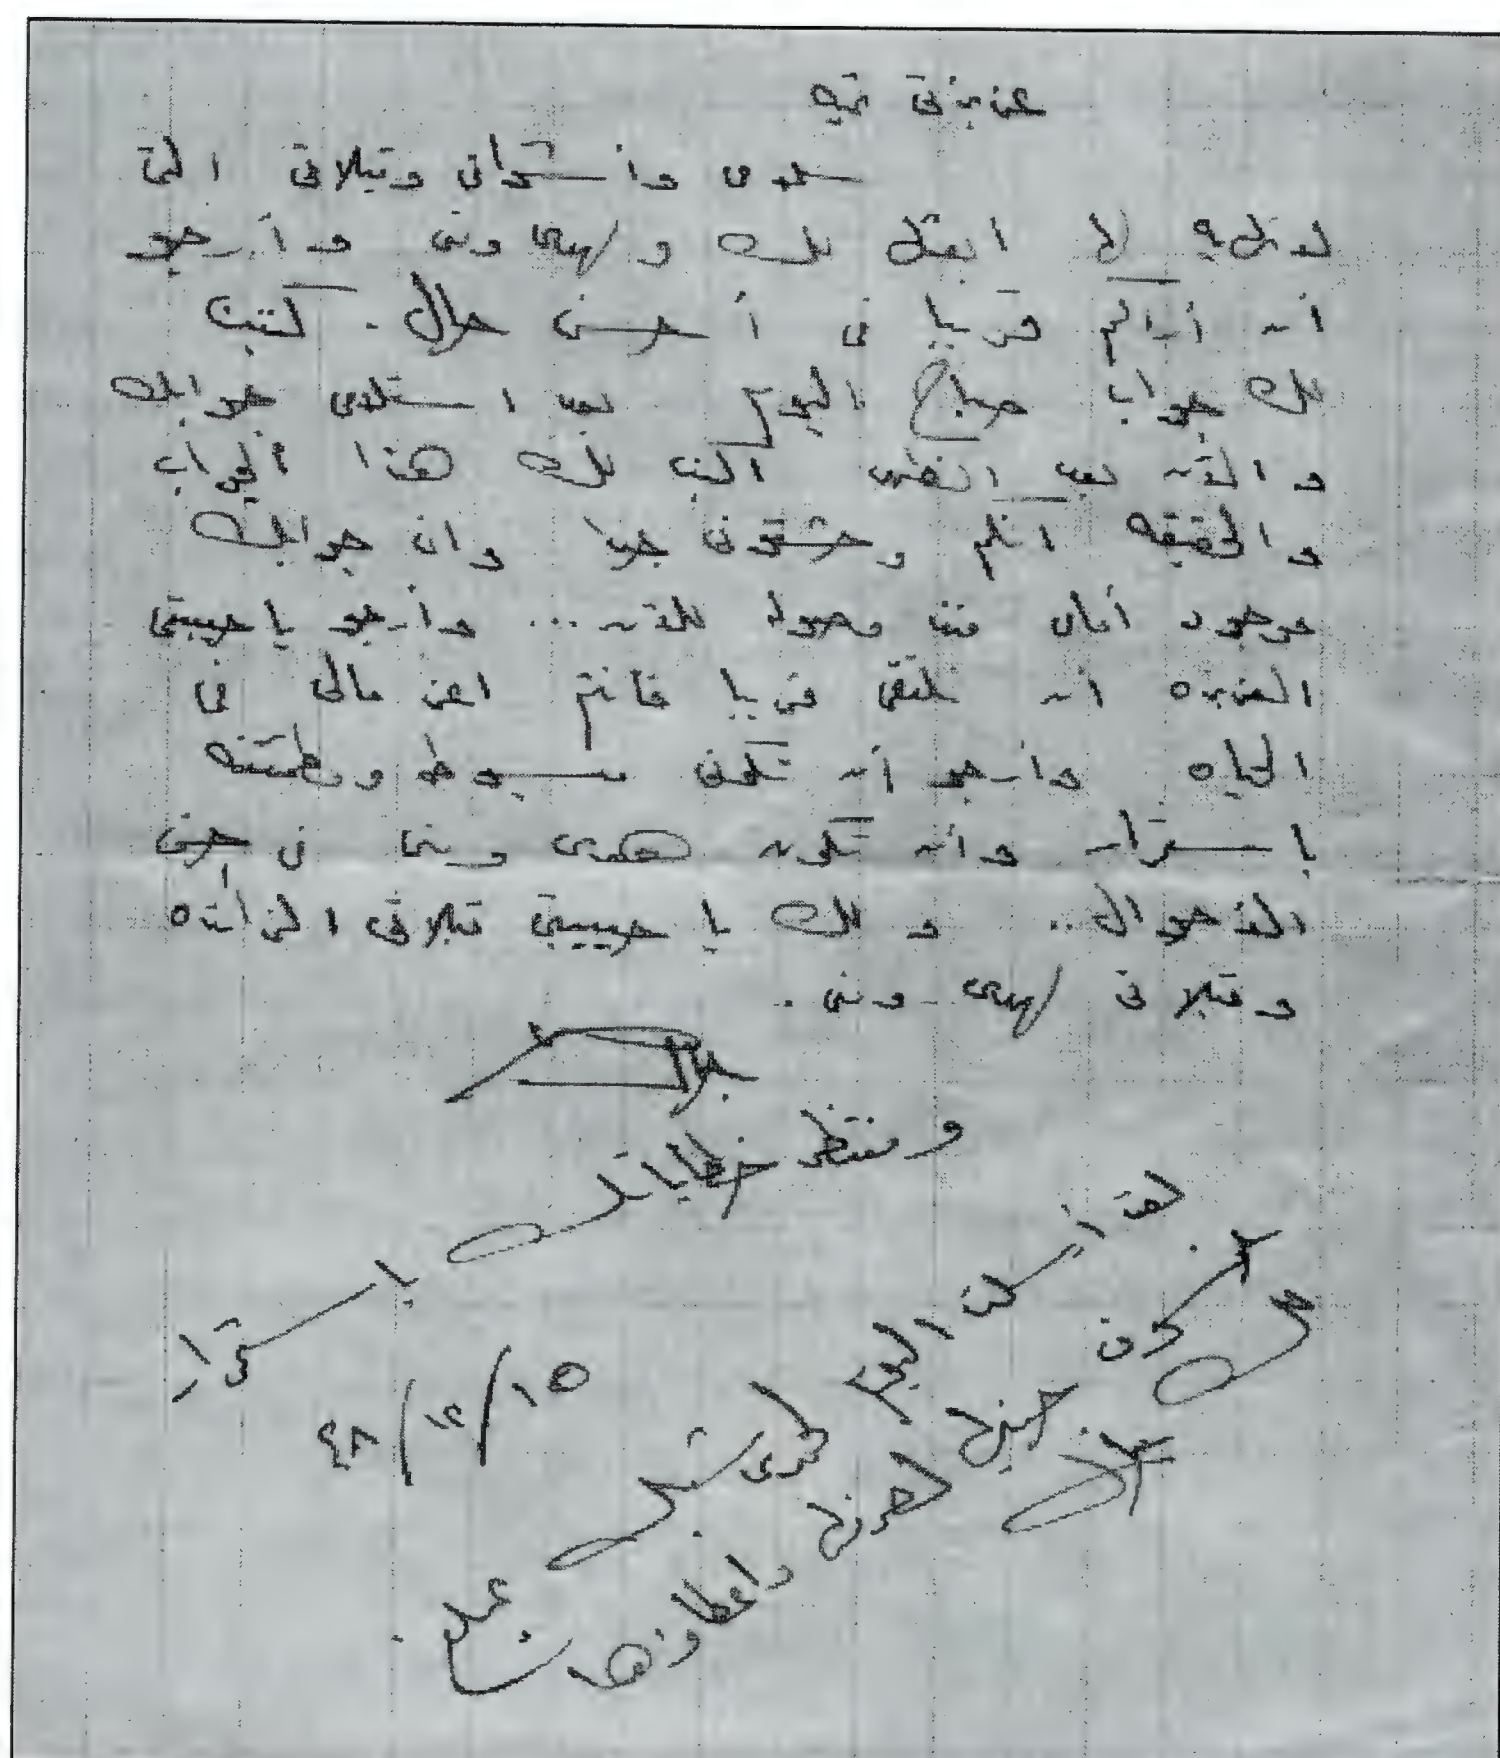 عزيزتى تحيه
سلامى وأشواقى وقبلاتى التى
لا نهايه لها ابعثها لك ولهدى ومنى وأرجو
أن أراكم قريبا فى أحسن حال. كتبت
لك جواب صباح اليوم بعد استلامى جوابك
والآن بعد الظهر اكتب لك هذا الجواب
والحقيقه انكم وحشتونى جدا وان جوابك
موجود أمامى منذ وصوله للآن... وأرجو يا حبيبتى
العزيزه أن نلتقى قريبا فانتم اعز مالى فى
الحياه وأرجو أن تكونى مبسوطه ومطمئنه
باستمرار وأن تكون هدى ومنى فى أحسن
الأحوال.. ولك يا حبيبتى قبلاتى الزائده
وقبلاتى لهدى ومنى.
جمال
ومنتظر خطاباتك باستمرار
٤٨/١٢/١٥
لقد أرسلت اليوم
جنيه
لصرفه واعطاؤها